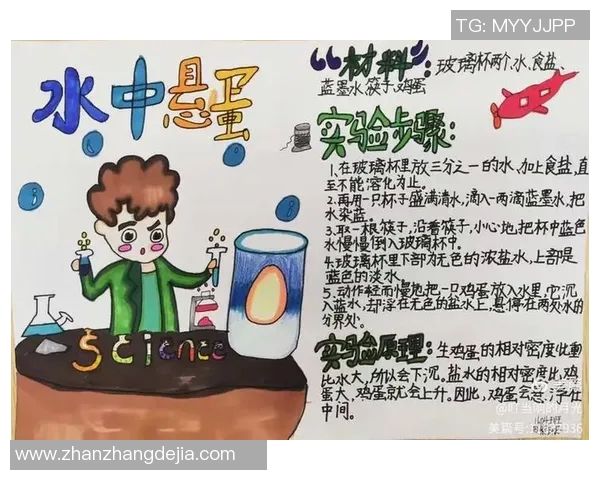 TG: MYYJJPP
水中悬蛋
Science
材料:玻璃杯两个、水、食盐、
蓝墨水、筷子、鸡蛋
实验步骤:
1.在玻璃杯里放三分之一的水,加上食盐,直
至不能溶化为止。
2.再用一只杯子盛满清水,滴入一两滴蓝墨水,把
水染蓝。
3.取一根筷子,沿着筷子,小心地,把杯中蓝色
水慢慢倒入玻璃杯中。
4.玻璃杯里下部为无色的浓盐水,上部是
蓝色的淡水。
5.动作轻而慢地把一只鸡蛋放入水里,它沉
入蓝水,却浮在无色的盐水上,悬停在两处水的
分界处。
实验原理:生鸡蛋的相对密度比重
比水大,所以会下沉。盐水的相对密度比鸡
蛋大,鸡蛋就会上升。因此,鸡蛋会悬浮在
中间。
@叮当响的月光
www.zhanzhangdejia.com